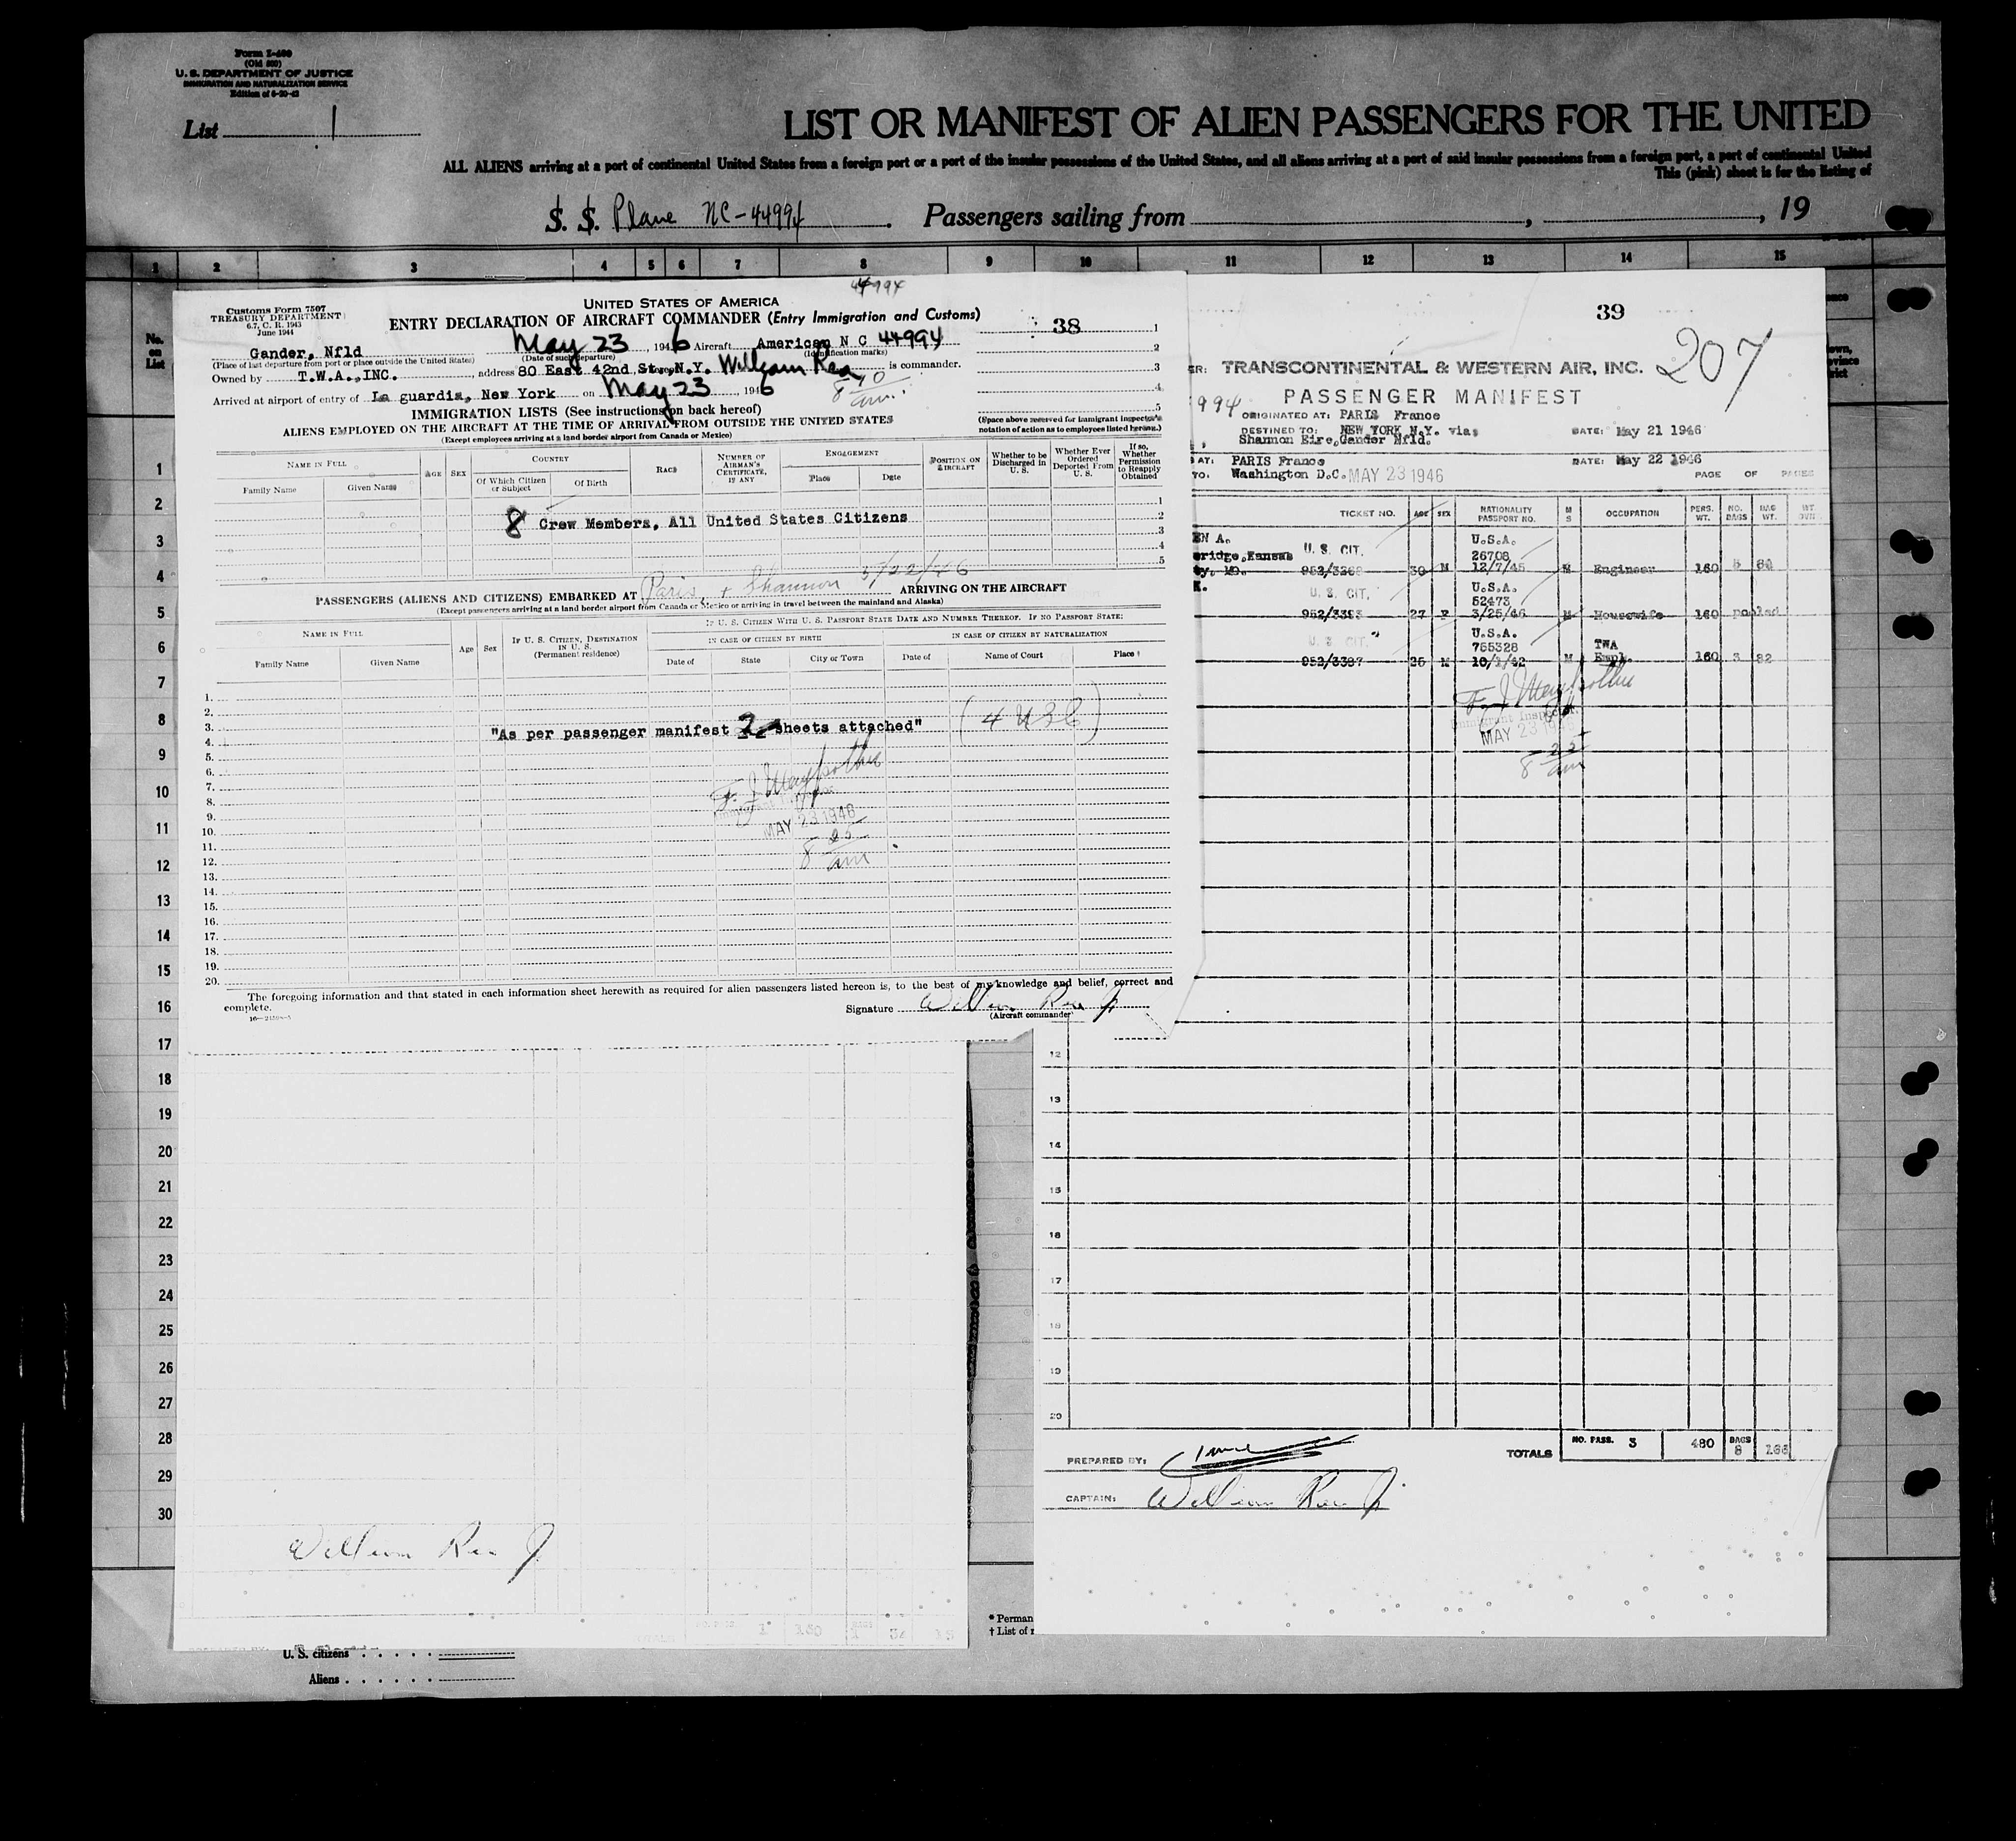 Form I-400
(Old 500)
U. S. DEPARTMENT OF JUSTICE
IMMIGRATION AND NATURALIZATION SERVICE
List 1
LIST OR MANIFEST OF ALIEN PASSENGERS FOR THE UNITED
ALL ALIENS arriving at a port of continental United States from a foreign port or a port of the insular possessions of the United States, and all aliens arriving at a port of said insular possessions from a foreign port, a port of continental United
This (pink) sheet is for the listing of
S. S. Plane NC-44994. Passengers sailing from , , 19
1 2 3 4 5 6 7 8 9 10 11 12 13 14 15
No. on List
1
2
3
4
5
6
7
8
9
10
11
12
13
14
15
16
17
18
19
20
21
22
23
24
25
26
27
28
29
30
44994
Customs Form 7507
TREASURY DEPARTMENT
6.7, C. R. 1943
June 1944
UNITED STATES OF AMERICA
ENTRY DECLARATION OF AIRCRAFT COMMANDER (Entry Immigration and Customs)
38
Gander, Nfld May 23, 1946 Aircraft American N C 44994
(Place of last departure from port or place outside the United States) (Date of such departure) (Identification marks)
Owned by T.W.A.,INC. , address 80 East 42nd St., N.Y. William Rea is commander.
Arrived at airport of entry of La guardia, New York on May 23, 1946
8 40 am.
IMMIGRATION LISTS (See instructions on back hereof)
ALIENS EMPLOYED ON THE AIRCRAFT AT THE TIME OF ARRIVAL FROM OUTSIDE THE UNITED STATES
(Except employees arriving at a land border airport from Canada or Mexico)
1
2
3
4
5
(Space above reserved for immigrant inspector's notation of action as to employees listed hereon.)
NAME IN FULL
Family Name Given Name
AGE SEX
COUNTRY
Of Which Citizen or Subject Of Birth
RACE
NUMBER OF AIRMAN'S CERTIFICATE, IF ANY
ENGAGEMENT
Place Date
POSITION ON AIRCRAFT
Whether to be Discharged in U. S.
Whether Ever Ordered Deported From U. S.
If so, Whether Permission to Reapply Obtained
8 Crew Members, All United States Citizens
1
2
3
4
5
PASSENGERS (ALIENS AND CITIZENS) EMBARKED AT Paris, + Shannon 5/22/46 ARRIVING ON THE AIRCRAFT
(Except passengers arriving at a land border airport from Canada or Mexico or arriving in travel between the mainland and Alaska)
NAME IN FULL
Family Name Given Name
Age Sex
IF U. S. CITIZEN, DESTINATION IN U. S. (Permanent residence)
IF U. S. CITIZEN WITH U. S. PASSPORT STATE DATE AND NUMBER THEREOF. IF NO PASSPORT STATE:
IN CASE OF CITIZEN BY BIRTH IN CASE OF CITIZEN BY NATURALIZATION
Date of State City or Town Date of Name of Court Place
1.
2.
3.
4.
5.
6.
7.
8.
9.
10.
11.
12.
13.
14.
15.
16.
17.
18.
19.
20.
"As per passenger manifest 2 sheets attached"
(4 USC)
Immigrant Inspector
MAY 23 1946
8 25 am
The foregoing information and that stated in each information sheet herewith as required for alien passengers listed hereon is, to the best of my knowledge and belief, correct and
complete.
Signature William Rea Jr
(Aircraft commander)
39
207
TRANSCONTINENTAL & WESTERN AIR, INC.
PASSENGER MANIFEST
994
ORIGINATED AT: PARIS France
DESTINED TO: NEW YORK N.Y. via: DATE: May 21 1946
Shannon Eire,Gander Nfld.
AT: PARIS France DATE: May 22 1946
TO. Washington D.C. MAY 23 1946 PAGE OF PAGES
TICKET NO. AGE SEX NATIONALITY PASSPORT NO. M S OCCUPATION PERS. WT. NO. BAGS BAG WT.
EN A. U.S.A.
bridge,Kansas U. S. CIT. 26708
30 M 12/7/45 M Engineer 160 5 84
K. U. S. CIT. U.S.A.
52473
952/3393 27 F 3/25/46 M Housewife 160 pooled
U. S. CIT. U.S.A.
755328 TWA
952/3397 26 M 10/1/42 M Empl. 160 3 82
Immigrant Inspector
MAY 23 1946
8 25 am
12
13
14
15
16
17
18
19
20
PREPARED BY:
TOTALS NO. PASS. 3 480 BAGS 8 166
CAPTAIN: William Rea Jr
William Rea Jr
1 160 1 34 15
* Perman
† List of r
U. S. citizens
Aliens